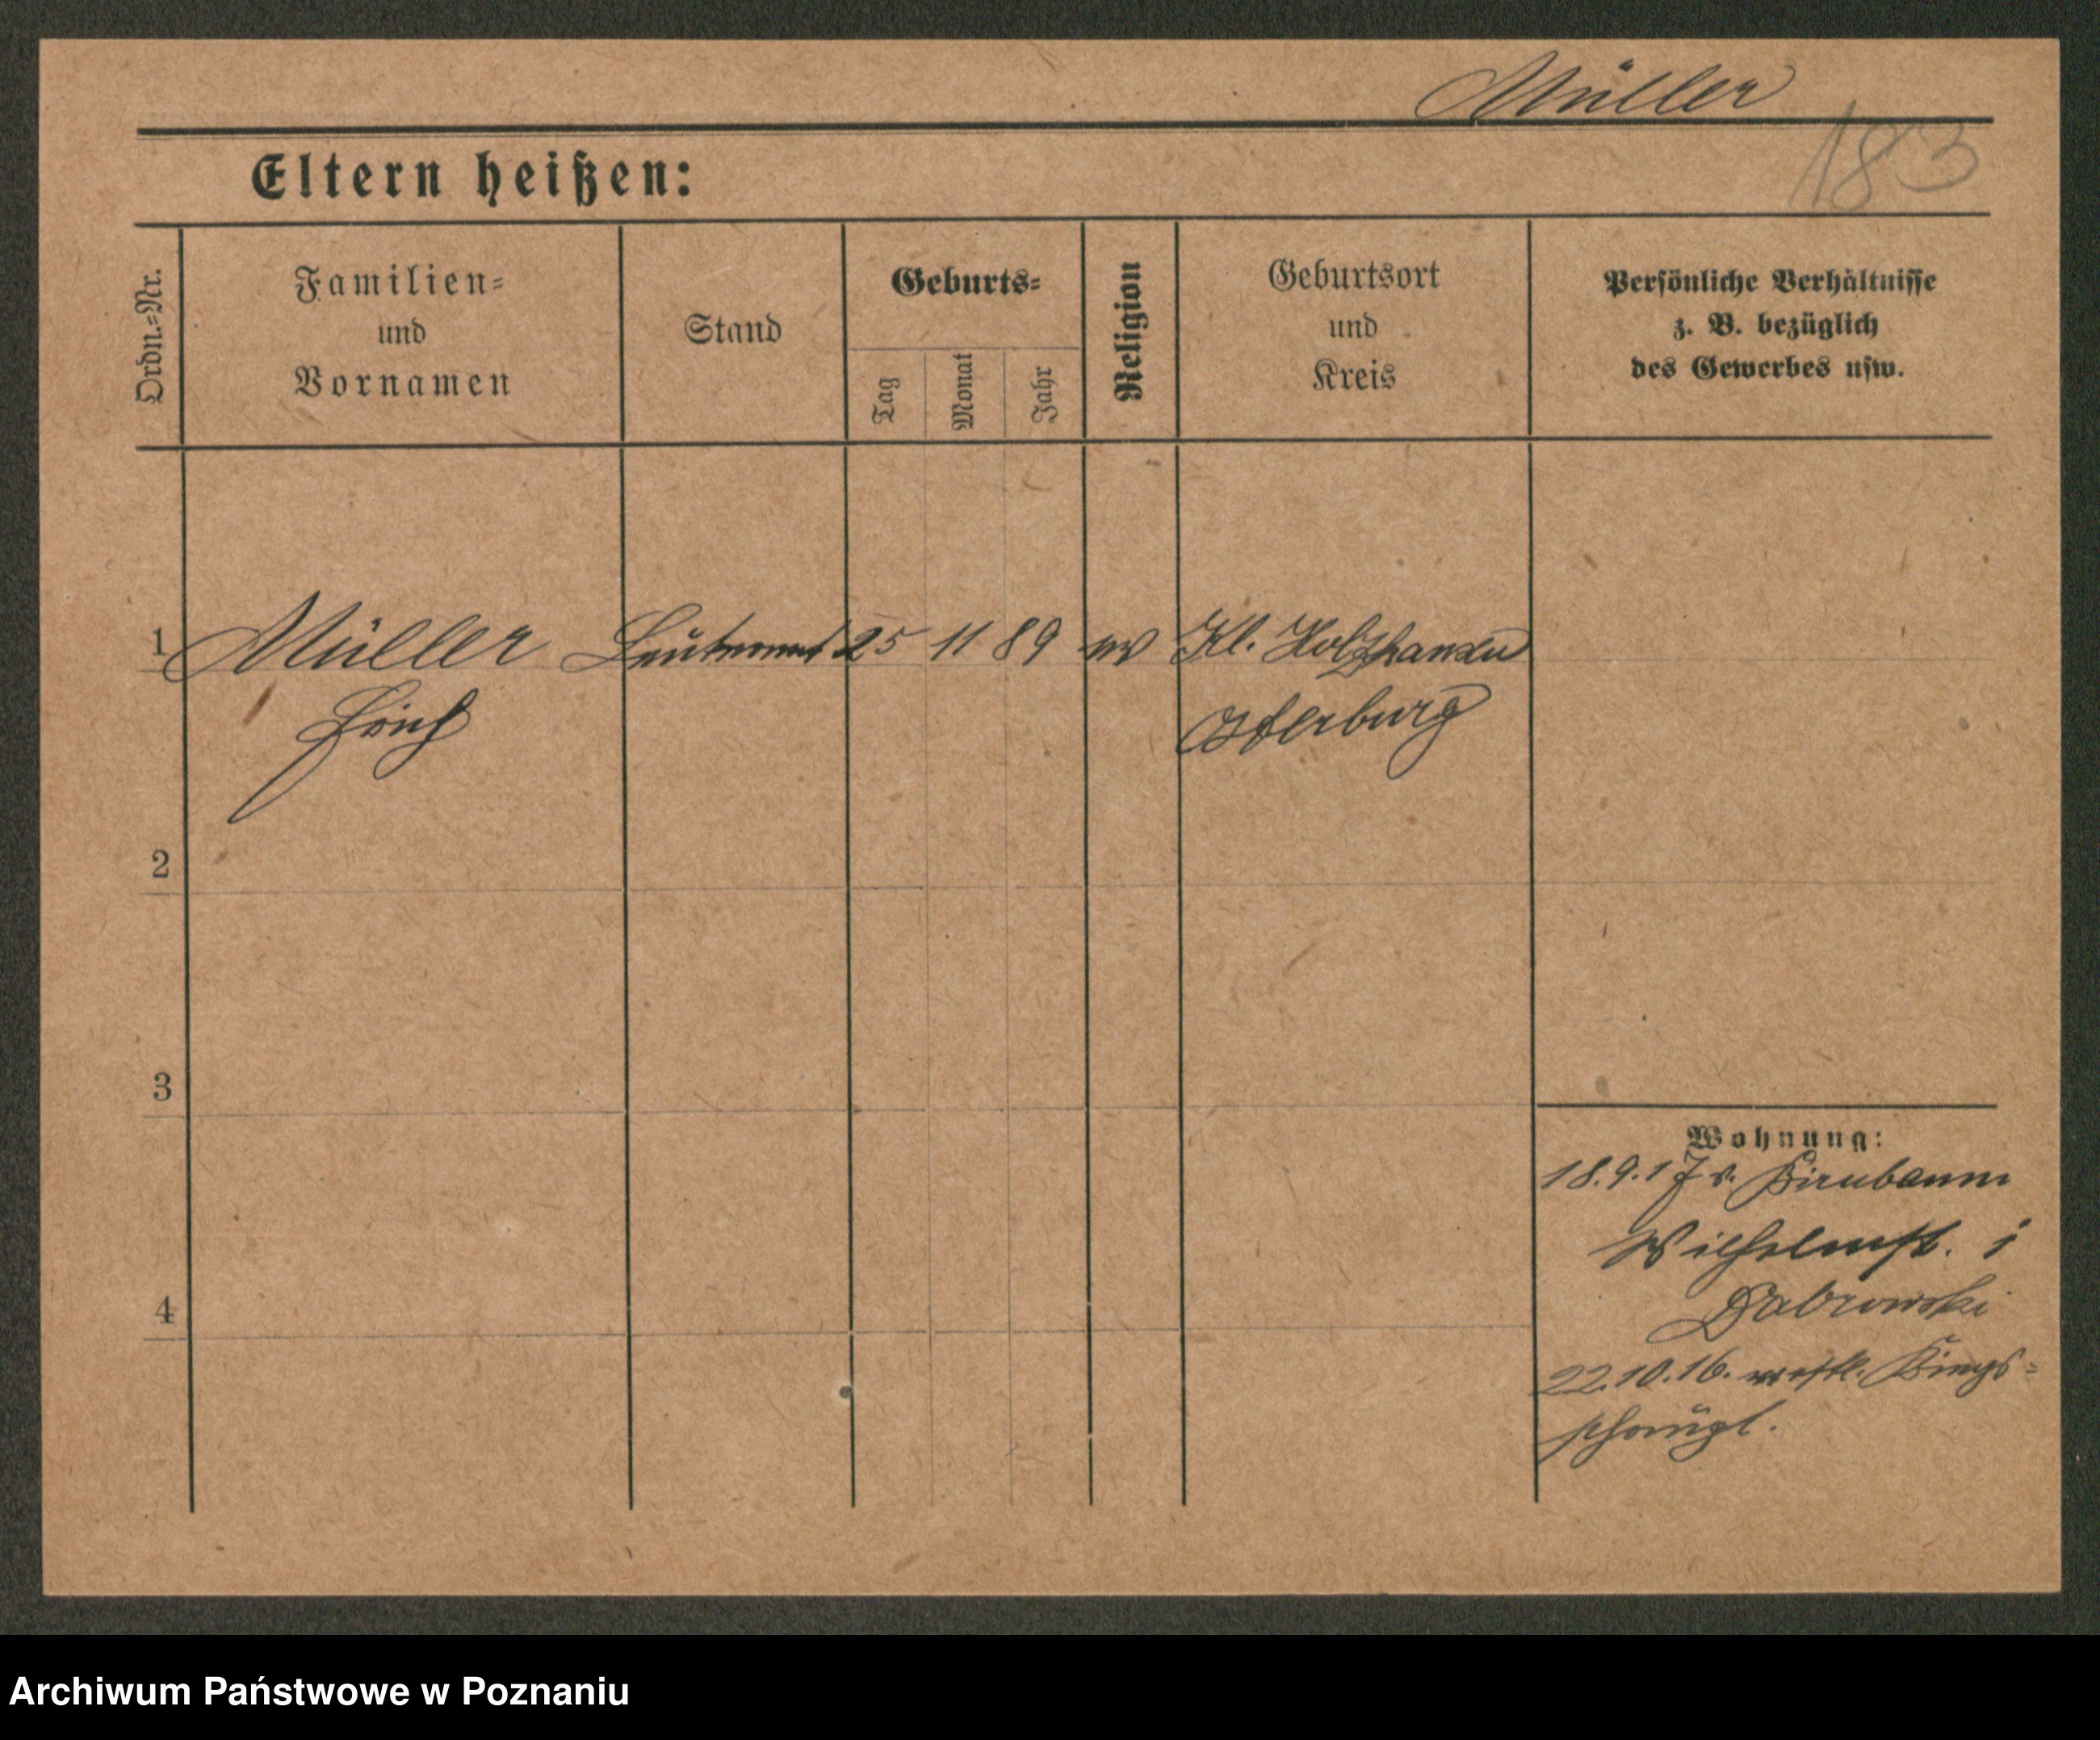 Müller
183
Eltern heißen:
Ordn.=Nr.
Familien=
und
Vornamen
Stand
Geburts=
Tag
Monat
Jahr
Religion
Geburtsort
und
Kreis
Persönliche Verhältnisse
z. B. bezüglich
des Gewerbes usw.
1 Müller Leutnant 25 11 89 ev Kl. Holzhausen
Erich Osterburg
2
3
4
Wohnung:
18.9.17 v. Birnbaum
Wilhelmst. 1
Dabrowski
22.10.16.
Archiwum Państwowe w Poznaniu